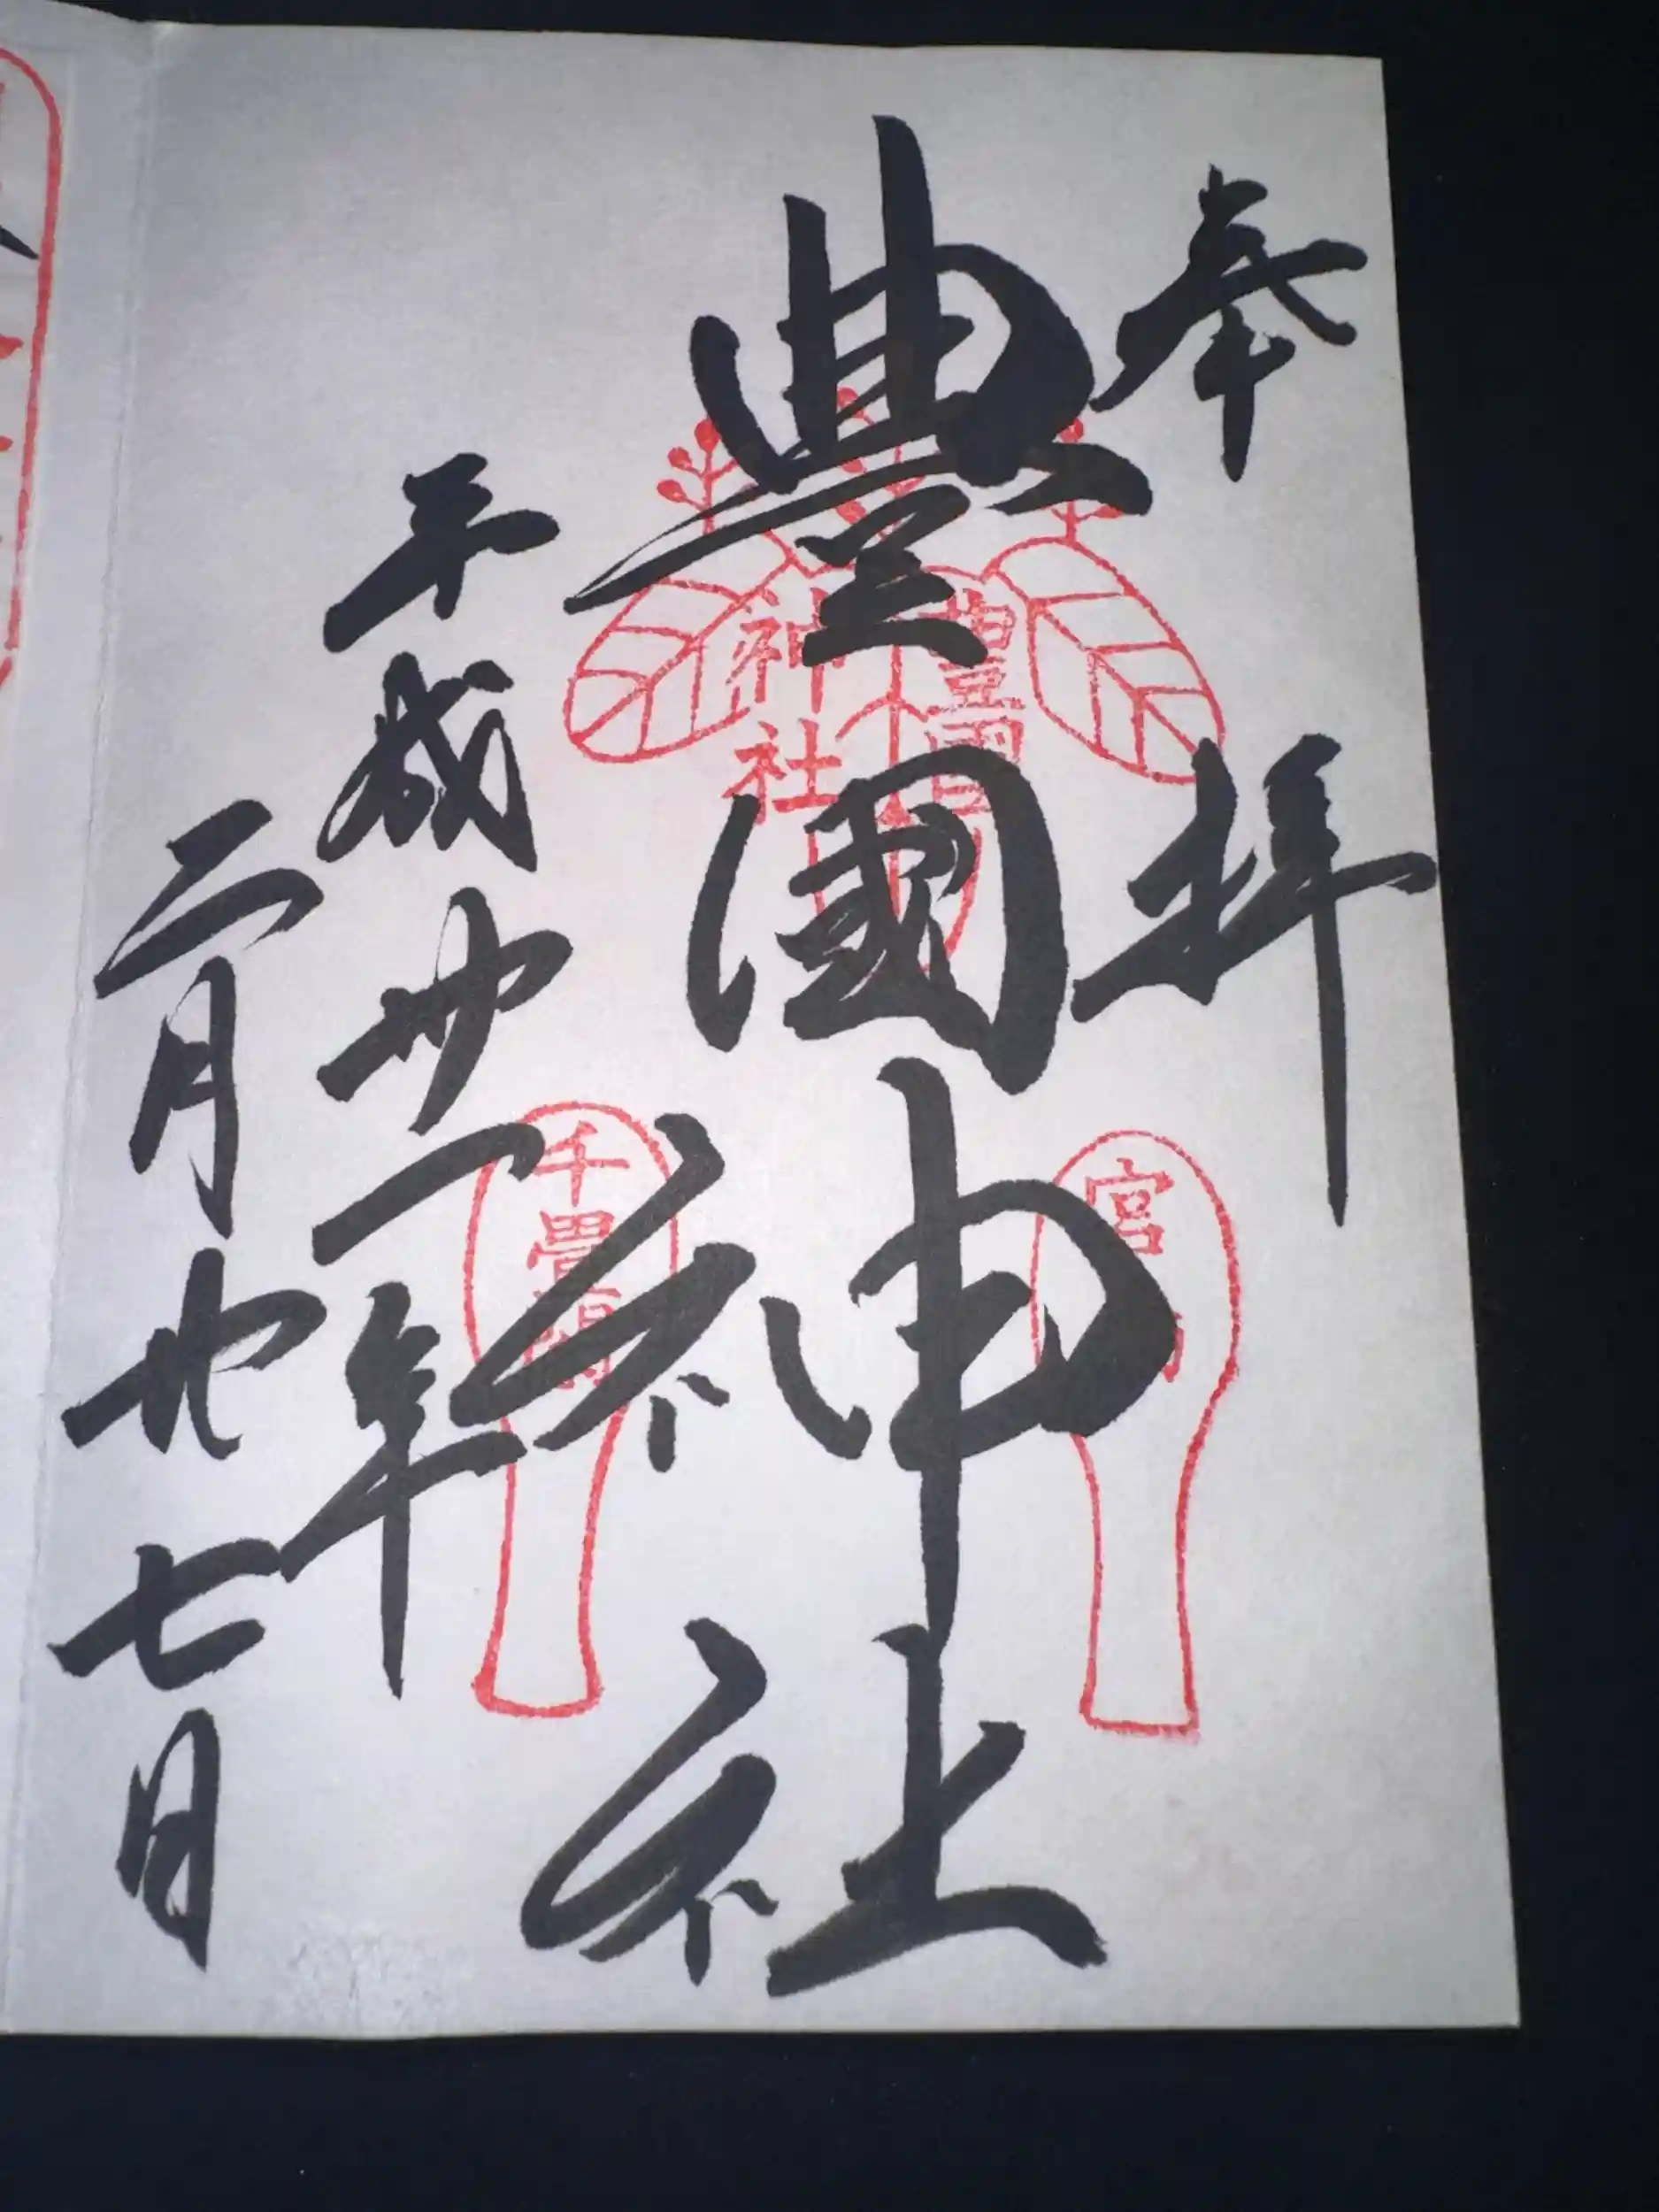 奉拝
豊國神社
平成卅一年
二月廿七日
豊國
神社
宮
千畳閣